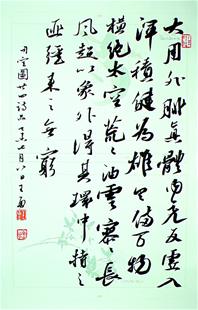 大用外腓真體内充反虛入
渾積健為雄具備万物
橫絶太空荒〻油雲寥〻長
風超以象外得其環中持之
匪强来之無窮
司空圖廿四詩品 七月八日王